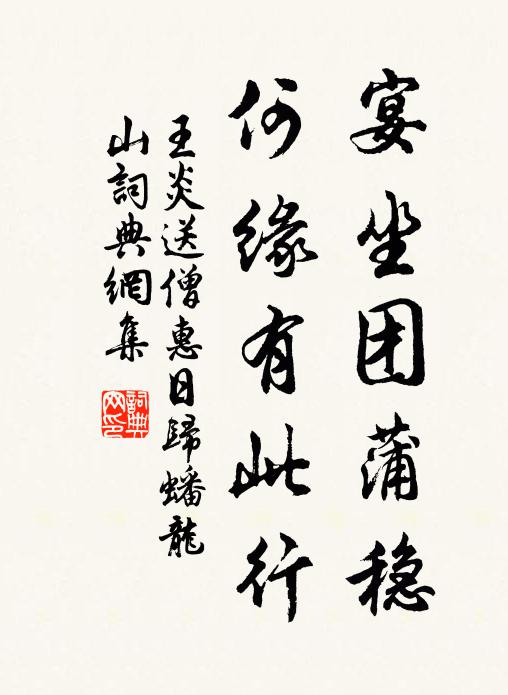 宴坐团蒲稳
何缘有此行
王炎送僧惠日歸蟠龍
山詞典網集
詞典网印